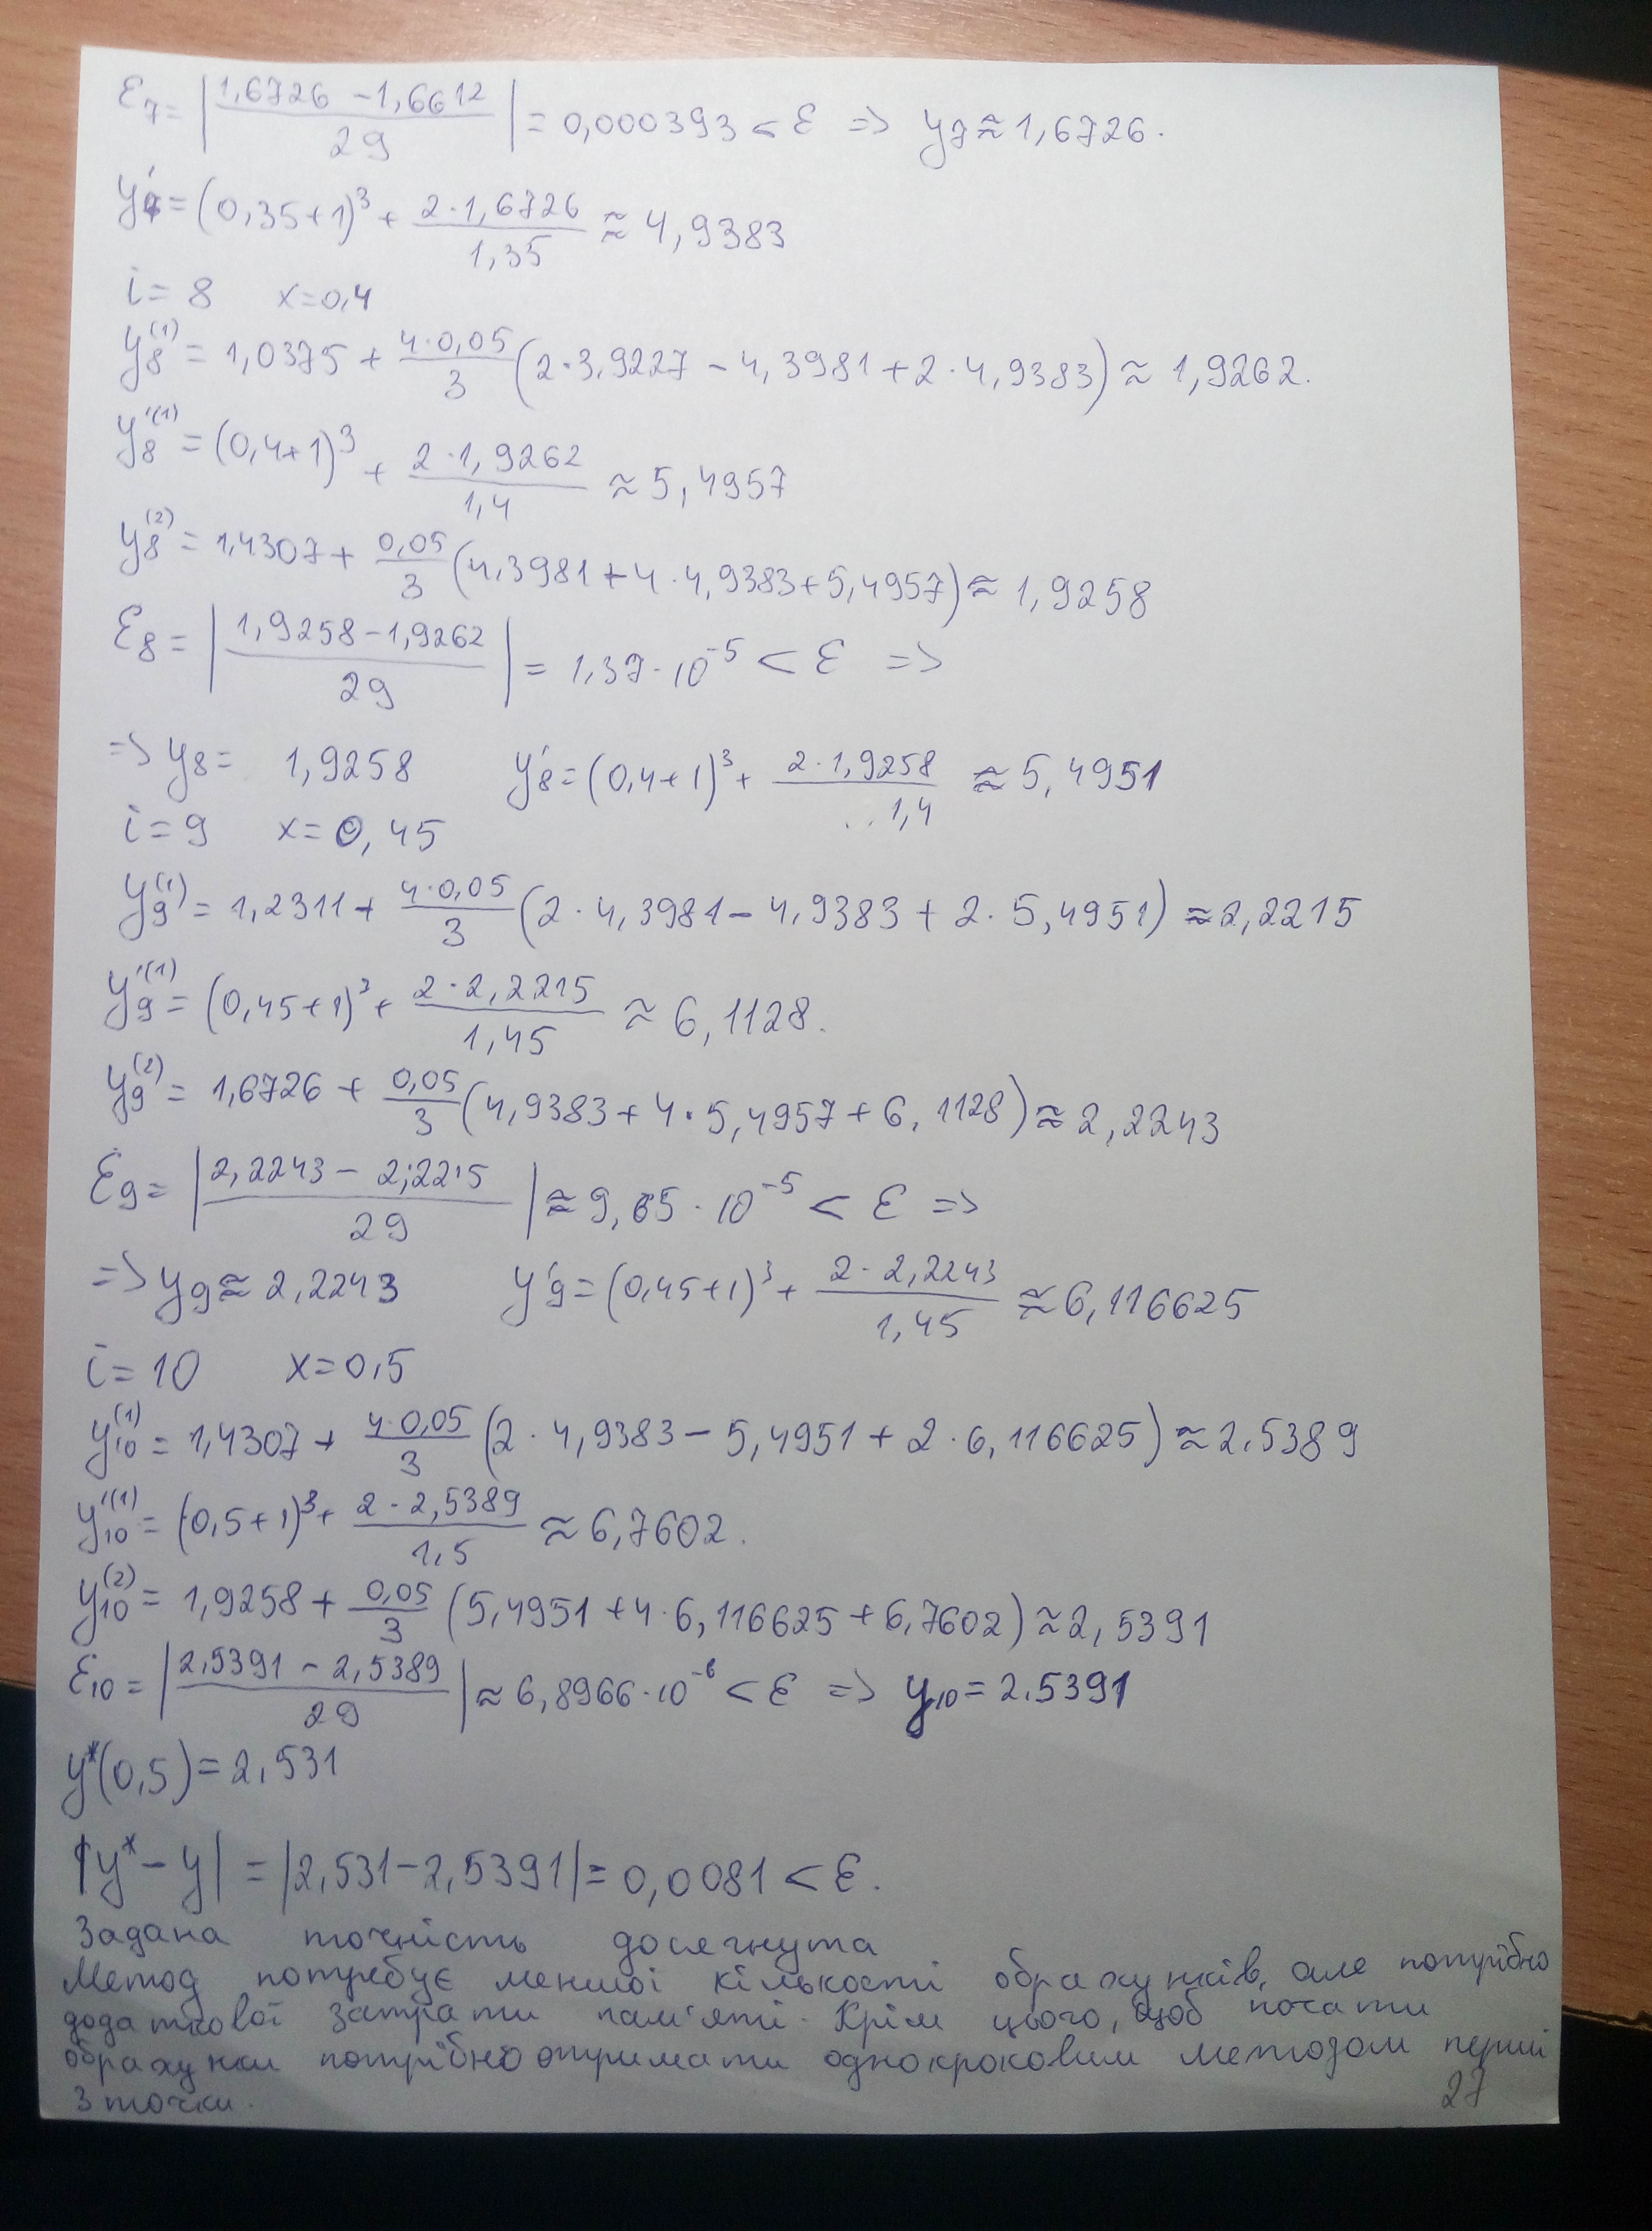 ε₇ = |(1,6726 − 1,6612)/29| = 0,000393 < ε => y₇ ≈ 1,6726.
y₇' = (0,35+1)³ + (2·1,6726)/1,35 ≈ 4,9383
i = 8 x = 0,4
y₈⁽¹⁾ = 1,0375 + (4·0,05)/3 (2·3,9227 − 4,3981 + 2·4,9383) ≈ 1,9262.
y₈'⁽¹⁾ = (0,4+1)³ + (2·1,9262)/1,4 ≈ 5,4957
y₈⁽²⁾ = 1,4307 + 0,05/3 (4,3981 + 4·4,9383 + 5,4957) ≈ 1,9258
ε₈ = |(1,9258 − 1,9262)/29| = 1,37·10⁻⁵ < ε =>
=> y₈ = 1,9258 y₈' = (0,4+1)³ + (2·1,9258)/1,4 ≈ 5,4951
i = 9 x = 0,45
y₉⁽¹⁾ = 1,2311 + (4·0,05)/3 (2·4,3981 − 4,9383 + 2·5,4951) ≈ 2,2215
y₉'⁽¹⁾ = (0,45+1)³ + (2·2,2215)/1,45 ≈ 6,1128.
y₉⁽²⁾ = 1,6726 + 0,05/3 (4,9383 + 4·5,4957 + 6,1128) ≈ 2,2243
ε₉ = |(2,2243 − 2,2215)/29| ≈ 9,65·10⁻⁵ < ε =>
=> y₉ ≈ 2,2243 y₉' = (0,45+1)³ + (2·2,2243)/1,45 ≈ 6,116625
i = 10 x = 0,5
y₁₀⁽¹⁾ = 1,4307 + (4·0,05)/3 (2·4,9383 − 5,4951 + 2·6,116625) ≈ 2.5389
y₁₀'⁽¹⁾ = (0,5+1)³ + (2·2,5389)/1,5 ≈ 6,7602.
y₁₀⁽²⁾ = 1,9258 + 0,05/3 (5,4951 + 4·6,116625 + 6,7602) ≈ 2,5391
ε₁₀ = |(2.5391 − 2,5389)/29| ≈ 6,8966·10⁻⁶ < ε => y₁₀ = 2.5391
y*(0,5) = 2,531
|y* − y| = |2,531 − 2,5391| = 0,0081 < ε.
Задана точність досягнута
Метод потребує меншої кількості обрахунків, але потрібно
додаткової затрати пам'яті. Крім цього, щоб почати
обрахунки потрібно отримати однокроковим методом перші
3 точки.
27